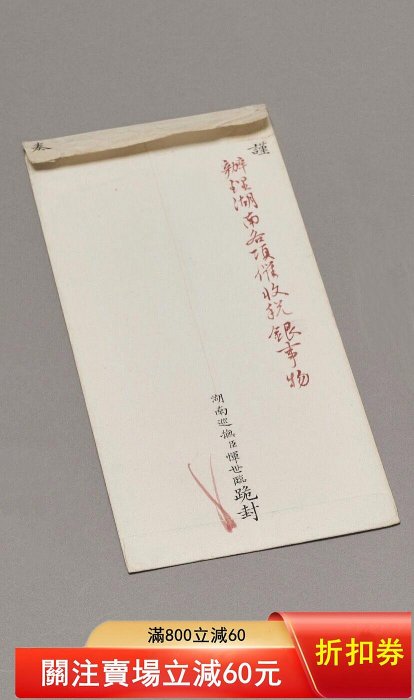 謹
奏
辦理湖南各項催收稅銀事物
湖南巡撫臣惲世臨跪封
滿800立減60
關注賣場立減60元
折扣券